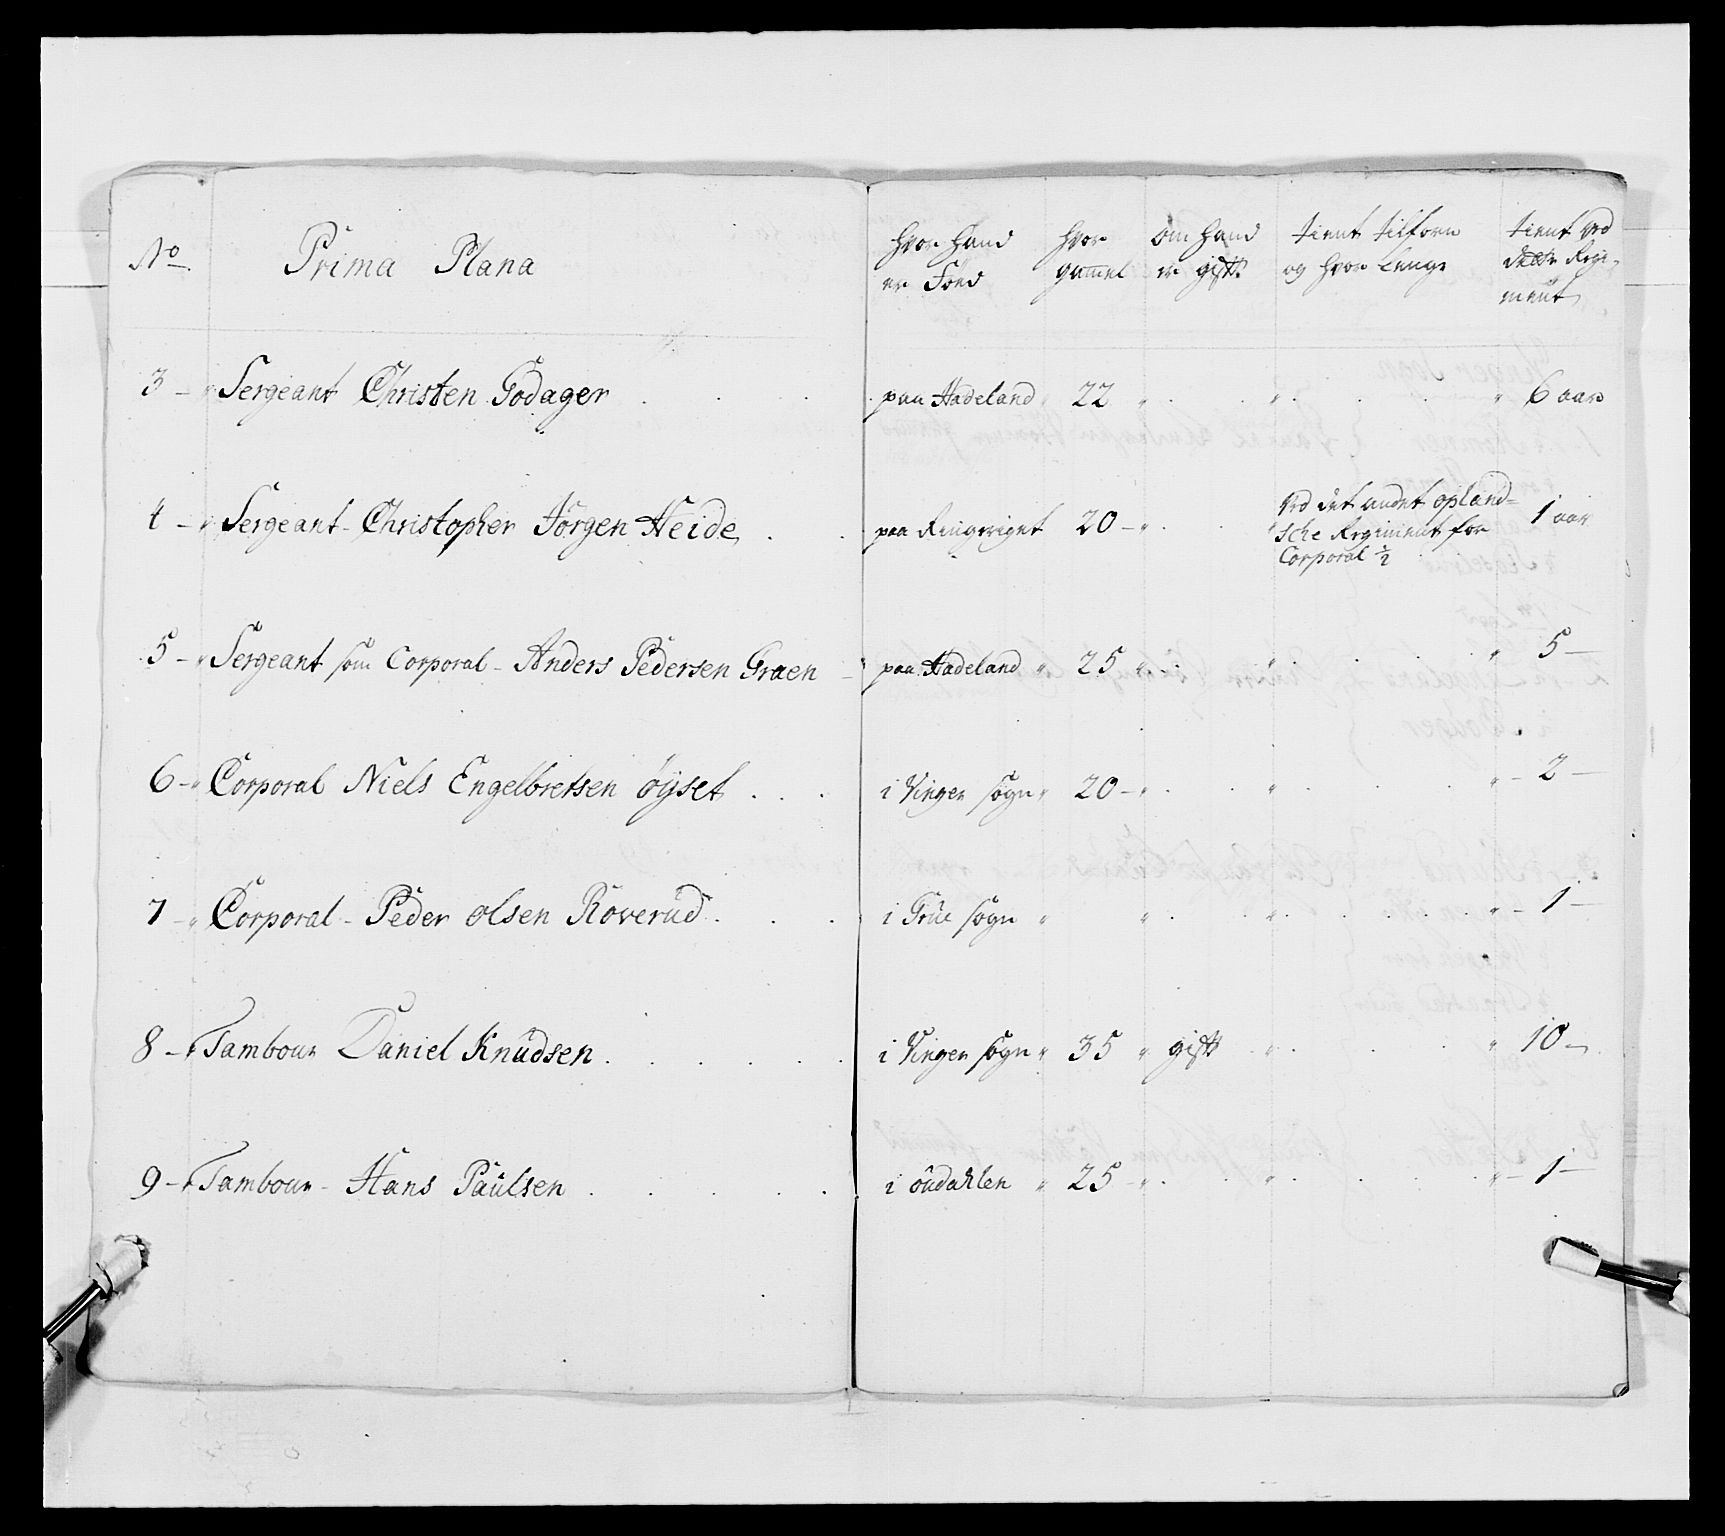 No Prima Plana hvor hand er Föed hvor gammel om hand er gift tient tilforn og hvor Lenge tient ved dette Regiment
3 Sergeant Christen Godager paa Hadeland 22 6 aar
4 Sergeant Christopher Jörgen Heide paa Ringeriget 20 ved det andet oplandsche Regiment for Corporal 1/2 1 aar
5 Sergeant som Corporal Anders Pedersen Graen paa Hadeland 25 5
6 Corporal Niels Engelbretsen öÿset i Vinger sogn 20 2
7 Corporal Peder olsen Roverud i Grue sogn 1
8 Tambour Daniel Knudsen i Vinger sogn 35 gift 10
9 Tambour Hans Paulsen i oudahlen 25 1